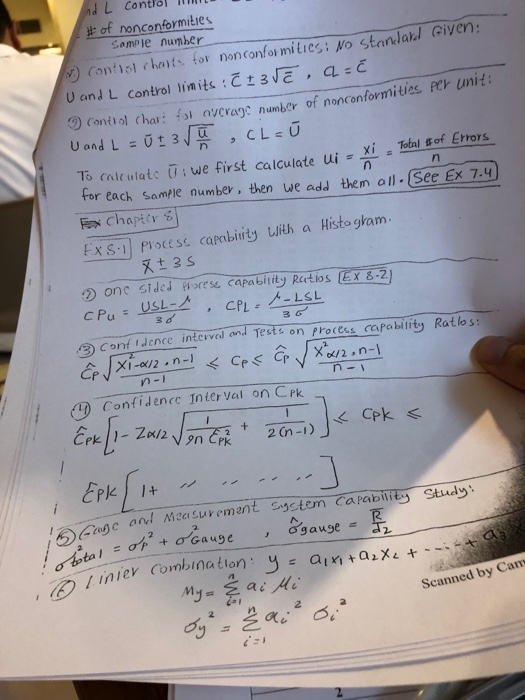 nd L Control
# of nonconformities
Sample number
Control charts for nonconformities: No standard Given:
U and L control limits: C̄ ± 3√C̄ , CL = C̄
③ Control chart for average number of nonconformities per unit:
U and L = Ū ± 3 √(ū/n) , CL = Ū
To calculate Ū: we first calculate ui = xi/n = Total # of Errors/n
for each sample number, then we add them all. (See Ex 7.4)
Ex Chapter 8
Ex 8.1 Process capability with a Histogram.
x̄ ± 3 S
② one sided Process capability Ratios [Ex 8-2]
CPu = USL-μ/3σ , CPL = μ-LSL/3σ
③ Confidence interval and Tests on Process capability Ratios:
Ĉp √(X²1-α/2, n-1/n-1) ≤ Cp ≤ Ĉp √(X²α/2, n-1/n-1)
④ Confidence Interval on Cpk
Ĉpk [1 - Zα/2 √(1/9n Ĉ²pk + 1/2(n-1))] ≤ Cpk ≤
Ĉpk [ 1+ " " -- -- -- ]
⑤ Gage and Measurement System Capability Study:
σ²total = σ²p + σ²Gauge , σ̂gauge = R̄/d2
⑥ Linier Combination: y = a1x1 + a2x2 + -----+ a
My = Σ ai Mi
n
i=1
σy² = Σ ai² σi²
n
i=1
Scanned by Cam
2